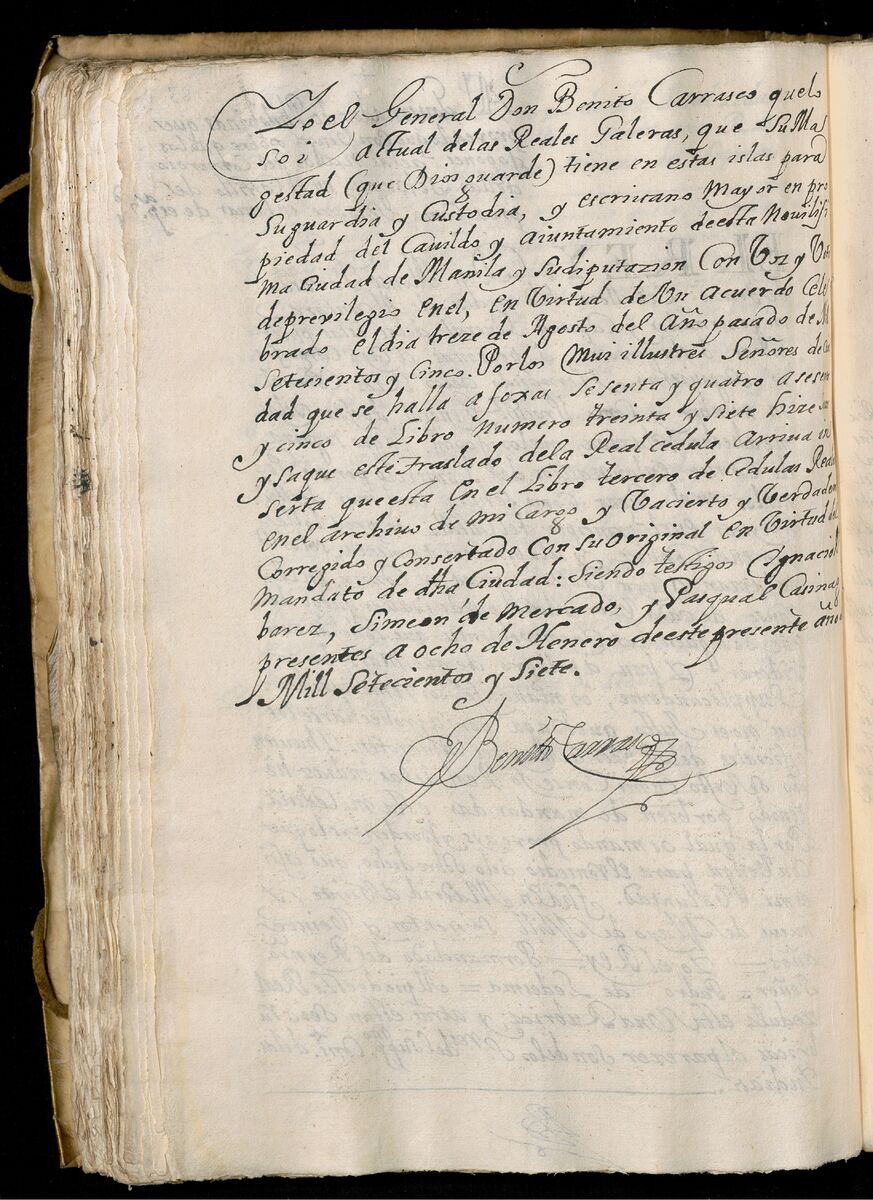 Yo el General Don Benito Carrasco que lo
soi actual delas Reales Galeras, que Su Ma
gestad (que Dios guarde) tiene en estas islas para
Su guardia y Custodia, y escrivano Mayor en pro
piedad del Cavildo y aiuntamiento deesta Novilisi
ma Ciudad de Manila y Sudiputazion Con Voz y Voto
deprevilegio enel, en Virtud de Un acuerdo Cele
brado eldia treze de Agosto del Año pasado de M
Setesientos y Cinco. Porlos Mui illustres Señores de
dad que se halla afoxas sesenta y quatro a sesen
y cinco de Libro Numero treinta y siete hize
y saque este traslado dela Real cedula arriva in
serta queesta en el Libro tercero de Cedulas Reales
en el archivo de mi Cargo y Vacierto y Verdadero
Corregido y Consertado Con su original en Virtud de
Mandato de dha Ciudad: Siendo testigos Ygnacio
barez, Simeon de Mercado, y Pasqual Casinag
presentes a ocho de Henero deeste presente año
Mill Setecientos y Siete.
Benito Carrasco